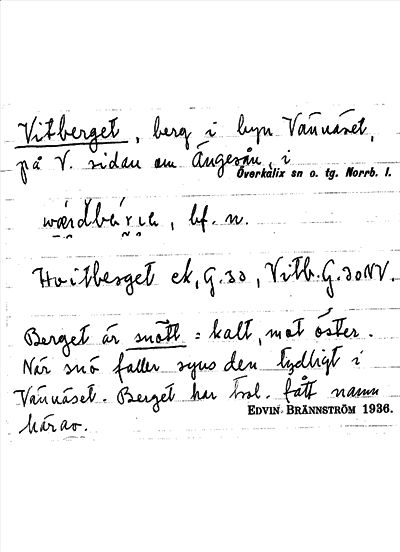 Vitberget, berg i byn Vännäset,
på V. sidan om Ängesån, i
Överkalix sn o. tg. Norrb. l.
bf. n.
Hvitberget ek, G. 30, Vitb. G. 30 NV.
Berget är snött = kalt, mot öster.
När snö faller syns den tydligt i
Vännäset. Berget har trol. fått namn
härav.
EDVIN BRÄNNSTRÖM 1936.